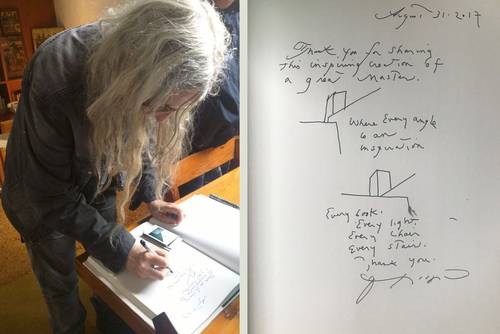 August 31. 2017
Thank you for sharing
this inspiring creation of
a great master.
Where Every angle
is an
inspiration
Every book.
Every light,
Every chair
Every stair.
Thank you.